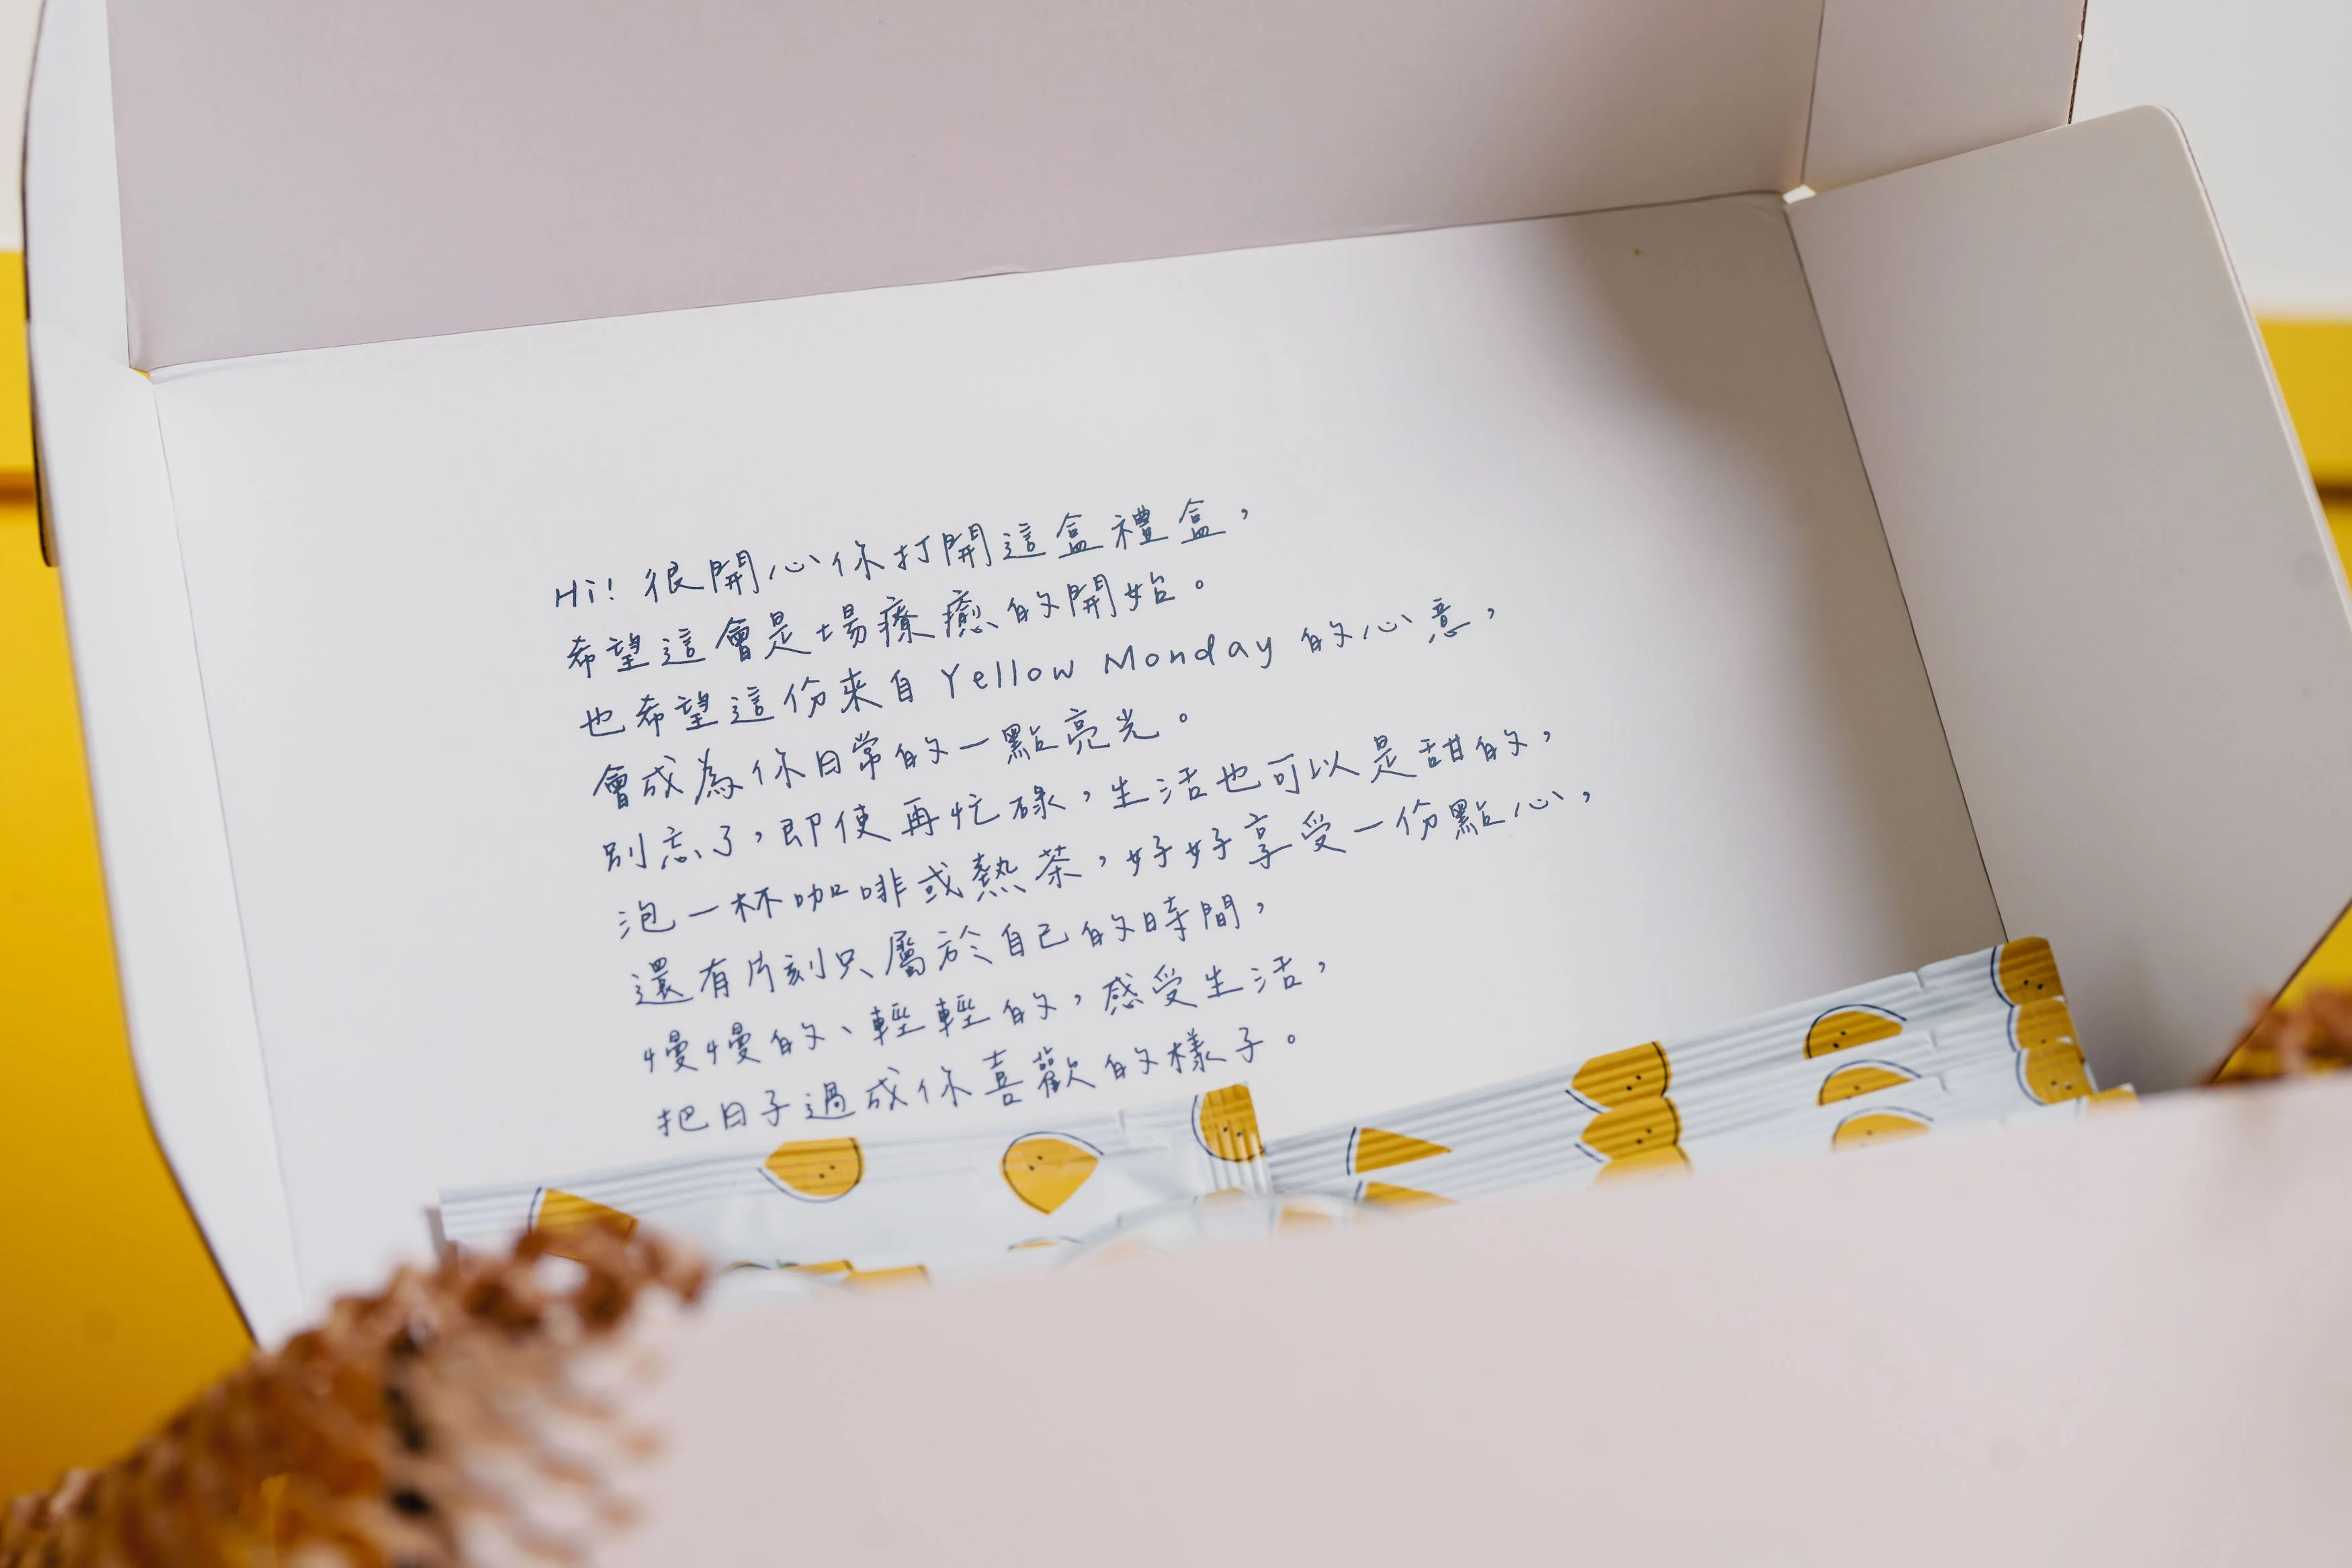 Hi! 很開心你打開這盒禮盒，
希望這會是場療癒的開始。
也希望這份來自 Yellow Monday 的心意，
會成為你日常的一點亮光。
別忘了，即使再忙碌，生活也可以是甜的，
泡一杯咖啡或熱茶，好好享受一份點心，
還有片刻只屬於自己的時間，
慢慢的、輕輕的，感受生活，
把日子過成你喜歡的樣子。